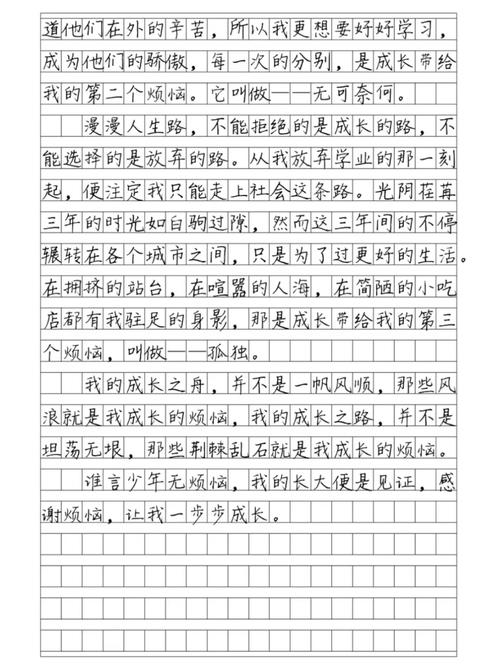 道他们在外的辛苦，所以我更想要好好学习，
成为他们的骄傲，每一次的分别，是成长带给
我的第二个烦恼。它叫做——无可奈何。
漫漫人生路，不能拒绝的是成长的路，不
能选择的是放弃的路。从我放弃学业的那一刻
起，便注定我只能走上社会这条路。光阴荏苒
三年的时光如白驹过隙，然而这三年间的不停
辗转在各个城市之间，只是为了过更好的生活。
在拥挤的站台，在喧嚣的人海，在简陋的小吃
店都有我驻足的身影，那是成长带给我的第三
个烦恼，叫做——孤独。
我的成长之舟，并不是一帆风顺，那些风
浪就是我成长的烦恼，我的成长之路，并不是
坦荡无垠，那些荆棘乱石就是我成长的烦恼。
谁言少年无烦恼，我的长大便是见证，感
谢烦恼，让我一步步成长。